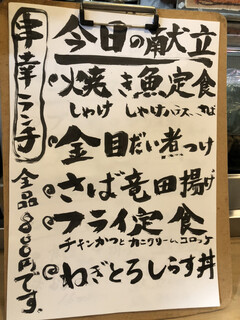 幸ランチ
今日の献立
焼き魚定食
しゃけ しゃけハラス、さば
金目だい煮つけ
さば竜田揚げ
フライ定食
チキンかつとカニクリーム、コロッケ
ねぎとろしらす丼
全品800円です。